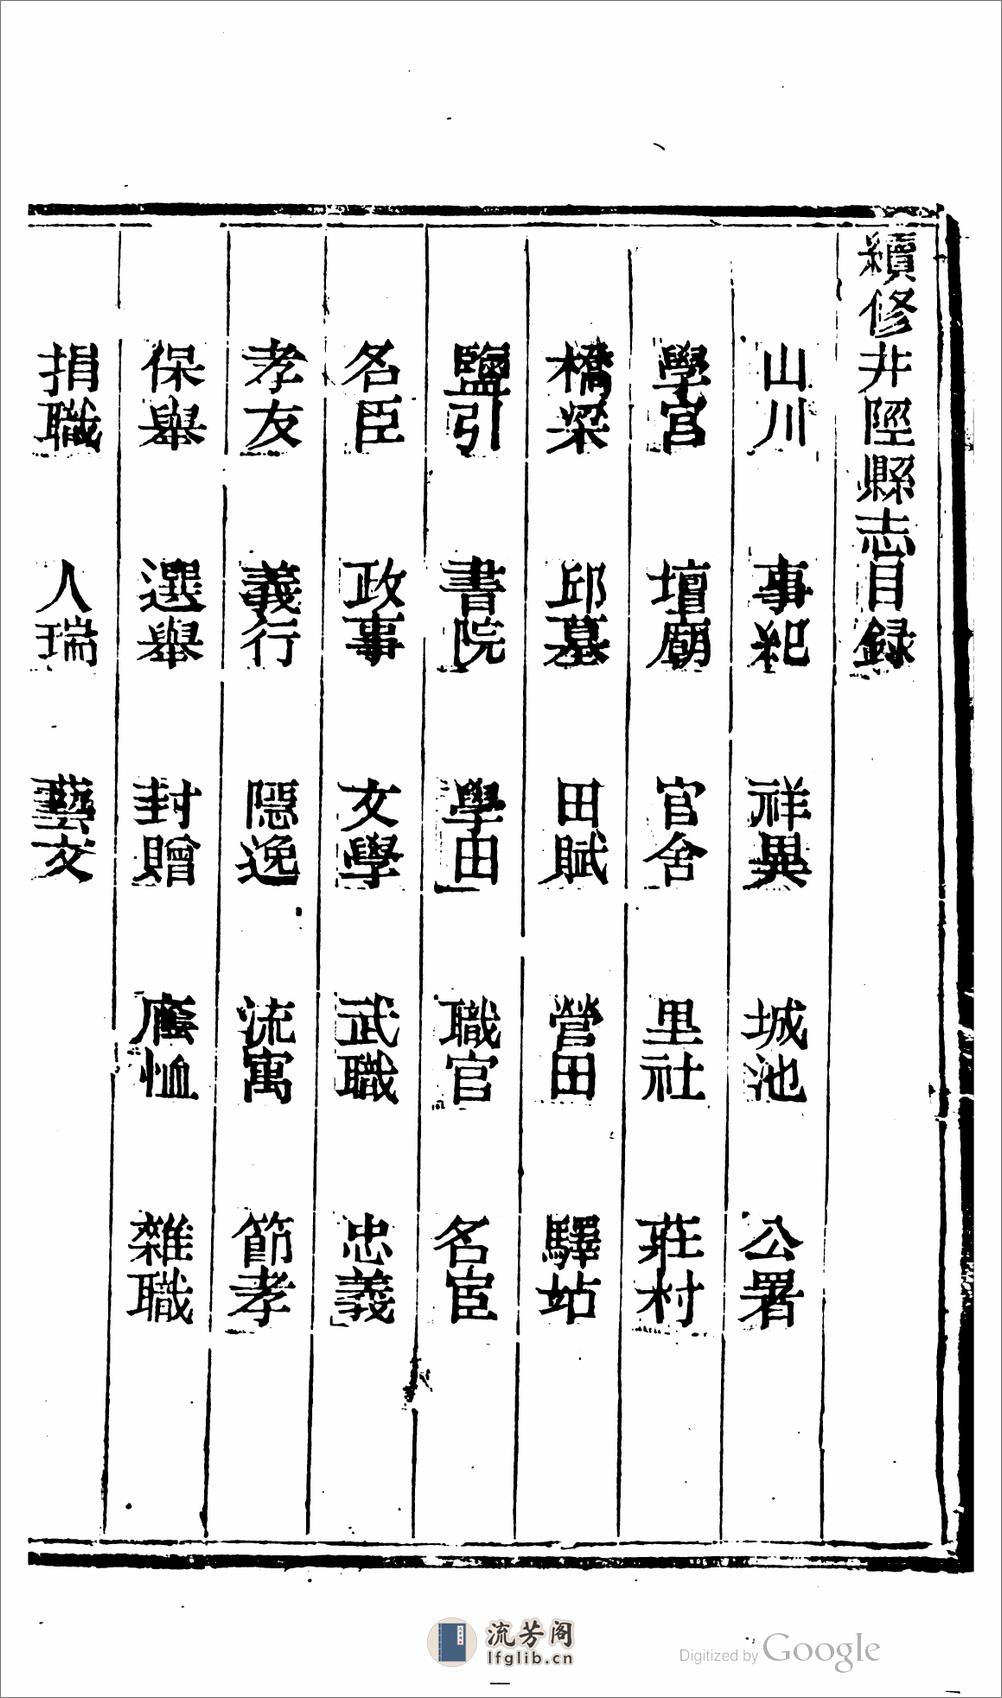 續修井陘縣志目錄
山川 事紀 祥異 城池 公署
學宮 壇廟 官舍 里社 莊村
橋梁 邱墓 田賦 營田 驛站
鹽引 書院 學田 職官 名宦
名臣 政事 文學 武職 忠義
孝友 義行 隱逸 流寓 節孝
保舉 選舉 封贈 廕恤 雜職
捐職 人瑞 藝文
流芳阁
lfglib.cn
Digitized by Google